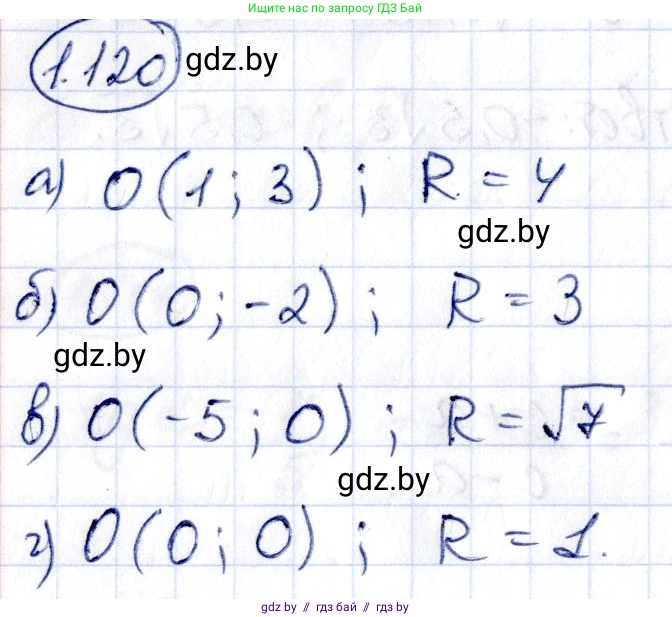 Ищи ответы по запросу ГДЗ Бай
1.120
gdz.by
а) O(1; 3); R = 4
gdz.by
б) O(0; -2); R = 3
gdz.by
в) O(-5; 0); R = √7
gdz.by
г) O(0; 0); R = 1.
gdz.by // гдз бай // gdz.by